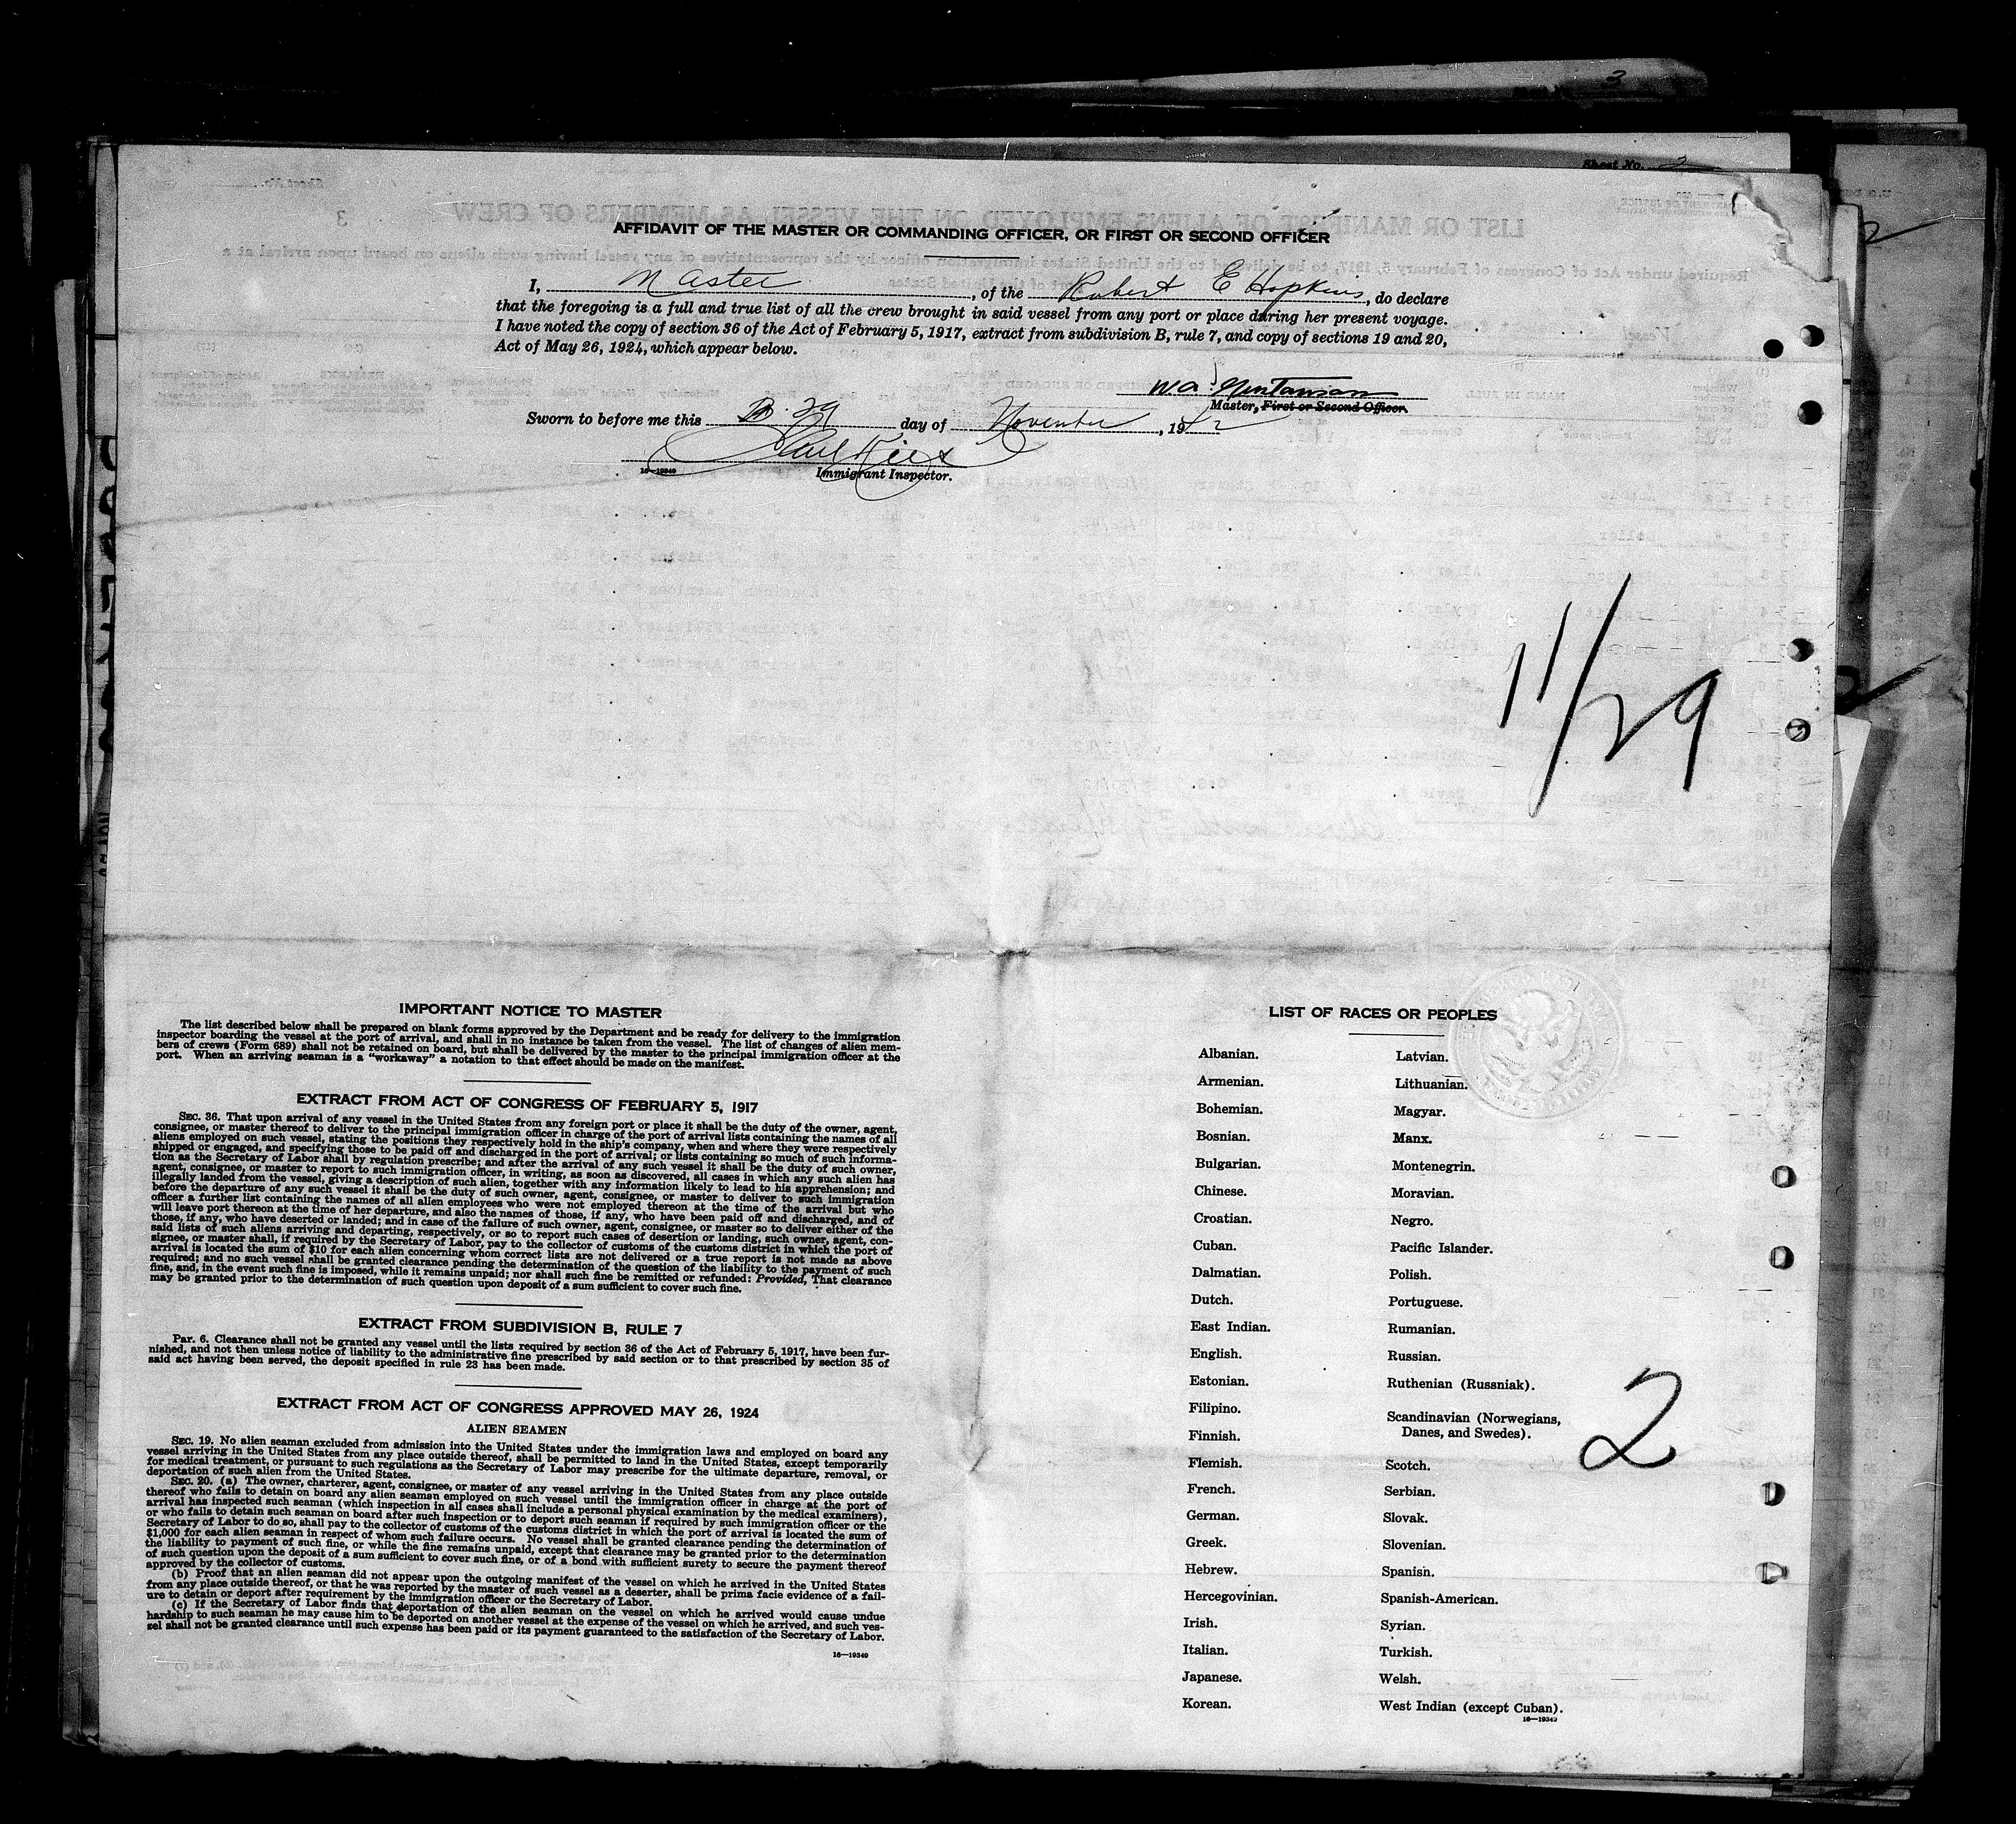 3
Sheet No. 2
AFFIDAVIT OF THE MASTER OR COMMANDING OFFICER, OR FIRST OR SECOND OFFICER
I, Master, of the Robert E Hopkins, do declare
that the foregoing is a full and true list of all the crew brought in said vessel from any port or place during her present voyage.
I have noted the copy of section 36 of the Act of February 5, 1917, extract from subdivision B, rule 7, and copy of sections 19 and 20,
Act of May 26, 1924, which appear below.
W.A.
Master, First or Second Officer.
Sworn to before me this 29 day of November, 1942
16—19349
Immigrant Inspector.
11/29
IMPORTANT NOTICE TO MASTER
The list described below shall be prepared on blank forms approved by the Department and be ready for delivery to the immigration
inspector boarding the vessel at the port of arrival, and shall in no instance be taken from the vessel. The list of changes of alien mem-
bers of crews (Form 689) shall not be retained on board, but shall be delivered by the master to the principal immigration officer at the
port. When an arriving seaman is a “workaway” a notation to that effect should be made on the manifest.
EXTRACT FROM ACT OF CONGRESS OF FEBRUARY 5, 1917
SEC. 36. That upon arrival of any vessel in the United States from any foreign port or place it shall be the duty of the owner, agent,
consignee, or master thereof to deliver to the principal immigration officer in charge of the port of arrival lists containing the names of all
aliens employed on such vessel, stating the positions they respectively hold in the ship's company, when and where they were respectively
shipped or engaged, and specifying those to be paid off and discharged in the port of arrival; or lists containing so much of such informa-
tion as the Secretary of Labor shall by regulation prescribe; and after the arrival of any such vessel it shall be the duty of such owner,
agent, consignee, or master to report to such immigration officer, in writing, as soon as discovered, all cases in which any such alien has
illegally landed from the vessel, giving a description of such alien, together with any information likely to lead to his apprehension; and
before the departure of any such vessel it shall be the duty of such owner, agent, consignee, or master to deliver to such immigration
officer a further list containing the names of all alien employees who were not employed thereon at the time of the arrival but who
will leave port thereon at the time of her departure, and also the names of those, if any, who have been paid off and discharged, and of
those, if any, who have deserted or landed; and in case of the failure of such owner, agent, consignee, or master so to deliver either of the
said lists of such aliens arriving and departing, respectively, or so to report such cases of desertion or landing, such owner, agent, con-
signee, or master shall, if required by the Secretary of Labor, pay to the collector of customs of the customs district in which the port of
arrival is located the sum of $10 for each alien concerning whom correct lists are not delivered or a true report is not made as above
required; and no such vessel shall be granted clearance pending the determination of the question of the liability to the payment of such
fine, and, in the event such fine is imposed, while it remains unpaid; nor shall such fine be remitted or refunded: Provided, That clearance
may be granted prior to the determination of such question upon deposit of a sum sufficient to cover such fine.
EXTRACT FROM SUBDIVISION B, RULE 7
Par. 6. Clearance shall not be granted any vessel until the lists required by section 36 of the Act of February 5, 1917, have been fur-
nished, and not then unless notice of liability to the administrative fine prescribed by said section or to that prescribed by section 35 of
said act having been served, the deposit specified in rule 23 has been made.
EXTRACT FROM ACT OF CONGRESS APPROVED MAY 26, 1924
ALIEN SEAMEN
SEC. 19. No alien seaman excluded from admission into the United States under the immigration laws and employed on board any
vessel arriving in the United States from any place outside thereof, shall be permitted to land in the United States, except temporarily
for medical treatment, or pursuant to such regulations as the Secretary of Labor may prescribe for the ultimate departure, removal, or
deportation of such alien from the United States.
SEC. 20. (a) The owner, charterer, agent, consignee, or master of any vessel arriving in the United States from any place outside
thereof who fails to detain on board any alien seaman employed on such vessel until the immigration officer in charge at the port of
arrival has inspected such seaman (which inspection in all cases shall include a personal physical examination by the medical examiners),
or who fails to detain such seaman on board after such inspection or to deport such seaman if required by such immigration officer or the
Secretary of Labor to do so, shall pay to the collector of customs of the customs district in which the port of arrival is located the sum of
$1,000 for each alien seaman in respect of whom such failure occurs. No vessel shall be granted clearance pending the determination of
the liability to payment of such fine, or while the fine remains unpaid, except that clearance may be granted prior to the determination
of such question upon the deposit of a sum sufficient to cover such fine, or of a bond with sufficient surety to secure the payment thereof
approved by the collector of customs.
(b) Proof that an alien seaman did not appear upon the outgoing manifest of the vessel on which he arrived in the United States
from any place outside thereof, or that he was reported by the master of such vessel as a deserter, shall be prima facie evidence of a fail-
ure to detain or deport after requirement by the immigration officer or the Secretary of Labor.
(c) If the Secretary of Labor finds that deportation of the alien seaman on the vessel on which he arrived would cause undue
hardship to such seaman he may cause him to be deported on another vessel at the expense of the vessel on which he arrived, and such ves-
sel shall not be granted clearance until such expense has been paid or its payment guaranteed to the satisfaction of the Secretary of Labor.
16—19349
LIST OF RACES OR PEOPLES
Albanian.
Armenian.
Bohemian.
Bosnian.
Bulgarian.
Chinese.
Croatian.
Cuban.
Dalmatian.
Dutch.
East Indian.
English.
Estonian.
Filipino.
Finnish.
Flemish.
French.
German.
Greek.
Hebrew.
Hercegovinian.
Irish.
Italian.
Japanese.
Korean.
Latvian.
Lithuanian.
Magyar.
Manx.
Montenegrin.
Moravian.
Negro.
Pacific Islander.
Polish.
Portuguese.
Rumanian.
Russian.
Ruthenian (Russniak).
Scandinavian (Norwegians,
Danes, and Swedes).
Scotch.
Serbian.
Slovak.
Slovenian.
Spanish.
Spanish-American.
Syrian.
Turkish.
Welsh.
West Indian (except Cuban).
16—19349
2